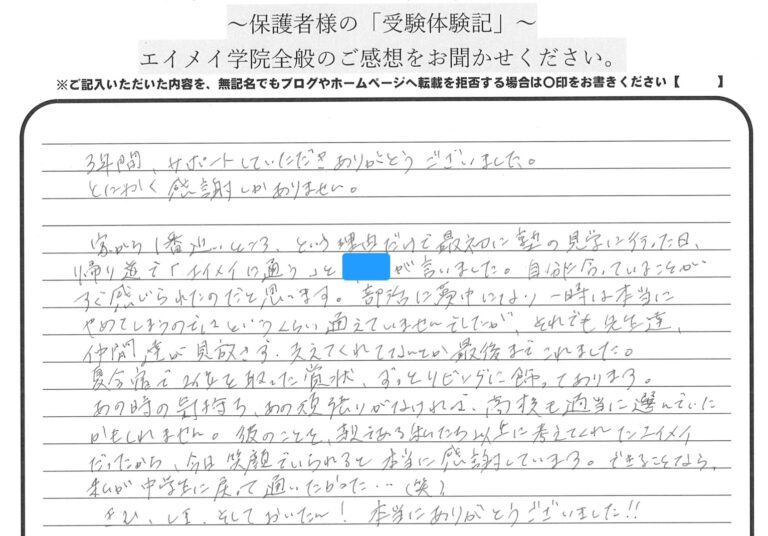 ～保護者様の「受験体験記」～
エイメイ学院全般のご感想をお聞かせください。
※ご記入いただいた内容を、無記名でもブログやホームページへ転載を拒否する場合は〇印をお書きください【　　　】
3年間、サポートしていただきありがとうございました。
とにかく感謝しかありません。
家から1番近いところ、という理由だけで最初に塾の見学に行った日、
帰り道で「エイメイに通う」と が言いました。自分に合っていることが
すぐ感じられたのだと思います。部活に夢中になり一時は本当に
やめてしまうのでは?というくらい通えていませんでしたが、それでも先生達、
仲間達が見放さず、支えてくれてなんとか最後までこれました。
夏合宿で を取った賞状、ずっとリビングに飾ってあります。
あの時の気持ち、あの頑張りがなければ、高校も適当に選んでいた
かもしれません。彼のことを、親である私たち以上に考えてくれたエイメイ
だったから、今日笑顔でいられると本当に感謝しています。できることなら、
私が中学生に戻って通いたかった…(笑)
そしておいたん! 本当にありがとうございました!!